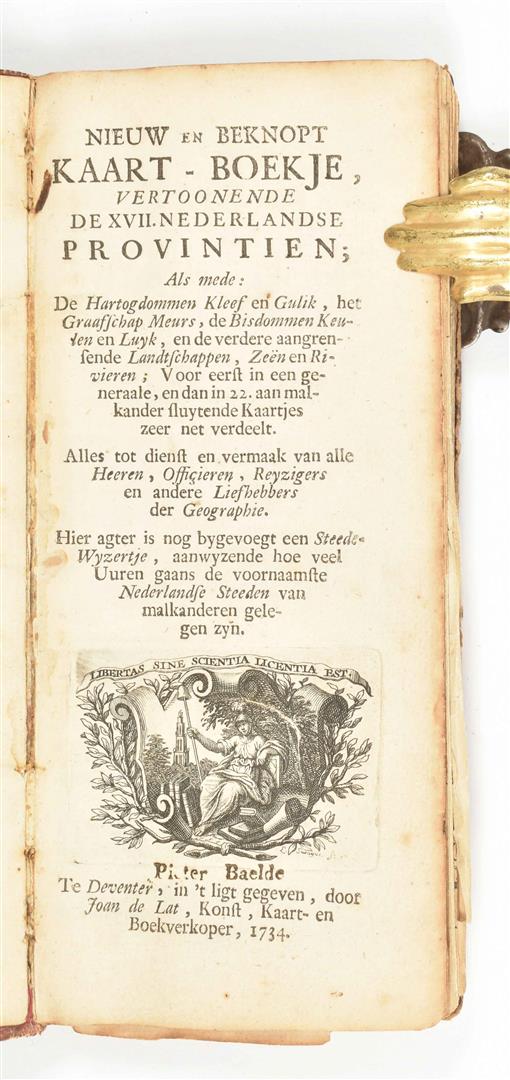 NIEUW EN BEKNOPT
KAART - BOEKJE,
VERTOONENDE
DE XVII. NEDERLANDSE
PROVINTIEN;
Als mede:
De Hartogdommen Kleef en Gulik, het
Graafſchap Meurs, de Bisdommen Keu-
len en Luyk, en de verdere aangren-
ſende Landtſchappen, Zeën en Ri-
vieren; Voor eerſt in een ge-
neraale, en dan in 22. aan mal-
kander ſluytende Kaartjes
zeer net verdeelt.
Alles tot dienſt en vermaak van alle
Heeren, Officieren, Reyzigers
en andere Liefhebbers
der Geographie.
Hier agter is nog bygevoegt een Steede-
Wyzertje, aanwyzende hoe veel
Uuren gaans de voornaamſte
Nederlandſe Steeden van
malkanderen gele-
gen zyn.
LIBERTAS SINE SCIENTIA LICENTIA EST.
Pieter Baelde
Te Deventer, in 't ligt gegeven, door
Joan de Lat, Konſt, Kaart- en
Boekverkoper, 1734.